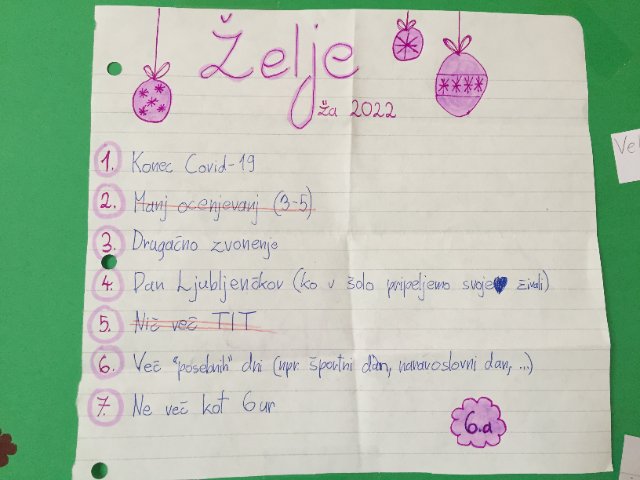 Želje
ža 2022
1. Konec Covid-19
2. Manj ocenjevanj (3-5)
3. Drugačno zvonenje
4. Dan Ljubljenčkov (ko v šolo pripeljemo svoje živali)
5. Nič več TIT
6. Več "posebnih" dni (npr športni dan, naravoslovni dan, ...)
7. Ne več kot 6 ur
6.a